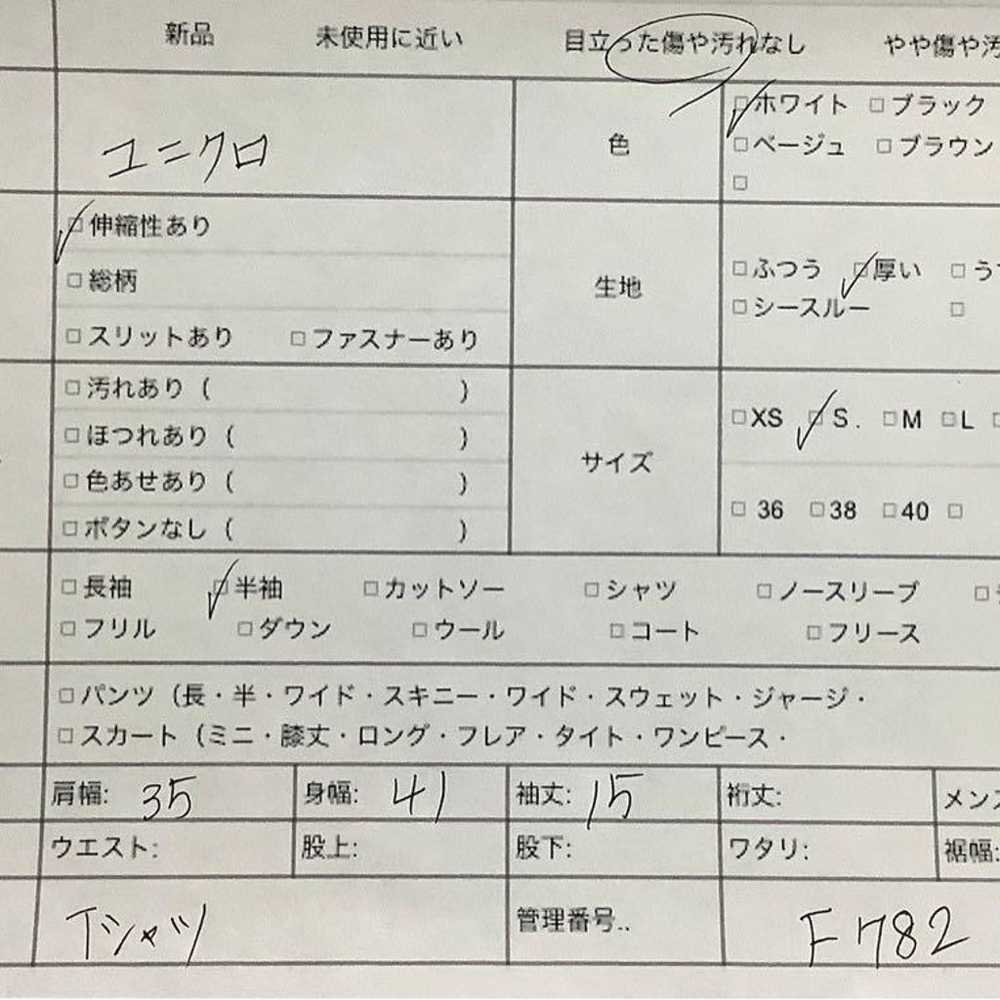 新品 未使用に近い 目立った傷や汚れなし やや傷や汚
ユニクロ 色 □ホワイト □ブラック
□ベージュ □ブラウン
□
□伸縮性あり
□総柄 生地 □ふつう □厚い □う
□シースルー □
□スリットあり □ファスナーあり
□汚れあり ( )
□ほつれあり ( )
□色あせあり ( )
□ボタンなし ( )
サイズ □XS □S. □M □L
□36 □38 □40 □
□長袖 □半袖 □カットソー □シャツ □ノースリーブ □
□フリル □ダウン □ウール □コート □フリース
□パンツ (長・半・ワイド・スキニー・ワイド・スウェット・ジャージ・
□スカート (ミニ・膝丈・ロング・フレア・タイト・ワンピース・
肩幅: 35 身幅: 41 袖丈: 15 裄丈: メンズ
ウエスト: 股上: 股下: ワタリ: 裾幅:
Tシャツ 管理番号.. F782